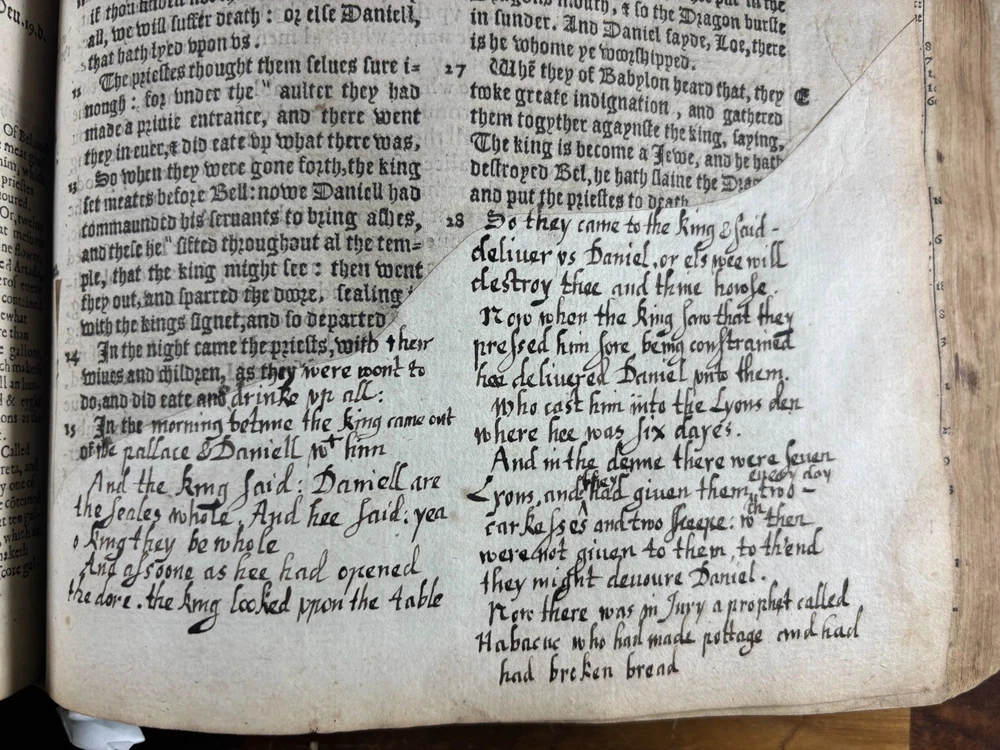 Deu.19.d.
if thou
all, we will suffer death : or else Daniell,
that hath lyed vpon vs.
12 The priestes thought them selues sure i=
nough : for vnder the " aulter they had
made a priuie entrance, and there went
they in euer, & did eate vp what there was,
13 So when they were gone forth, the king
set meates before Bell: nowe Daniell had
commaunded his seruants to bring ashes,
and these he " sifted throughout al the tem=
ple, that the king might see : then went
they out, and sparred the doore, sealing
with the kings signet, and so departed
14 In the night came the priests, with their
wiues and children, as they were wont to
do, and did eate and drinke vp all:
15 In the morning betime the King came out
of the pallace & Daniell wt him
And the King said: Daniell are
the seales whole, And hee said: yea
o King they be whole
And assoone as hee had opened
the dore. the King looked vppon the table
mouth, & so the Dragon burste
in sunder. And Daniel sayde, Loe, there
is he whome ye worshipped.
27 Whē they of Babylon heard that, they
tooke greate indignation, and gathered
them togyther agaynste the king, saying,
The king is become a Jewe, and he hath
destroyed Bel, he hath slaine the Drag
and put the priestes to death
28 So they came to the King & said -
deliver vs Daniel, or els wee will
destroy thee and thine howse.
Now when the King saw that they
pressed him sore being constrained
hee delivered Daniel vnto them.
Who cast him into the Lyons den
where hee was six dayes.
And in the denne there were seven
Lyons, and they had given them every day two -
carkesses and two sheepe: wch then
were not given to them, to th'end
they might devoure Daniel.
Now there was in Jury a prophet called
Habacuc who had made pottage and had
had broken bread